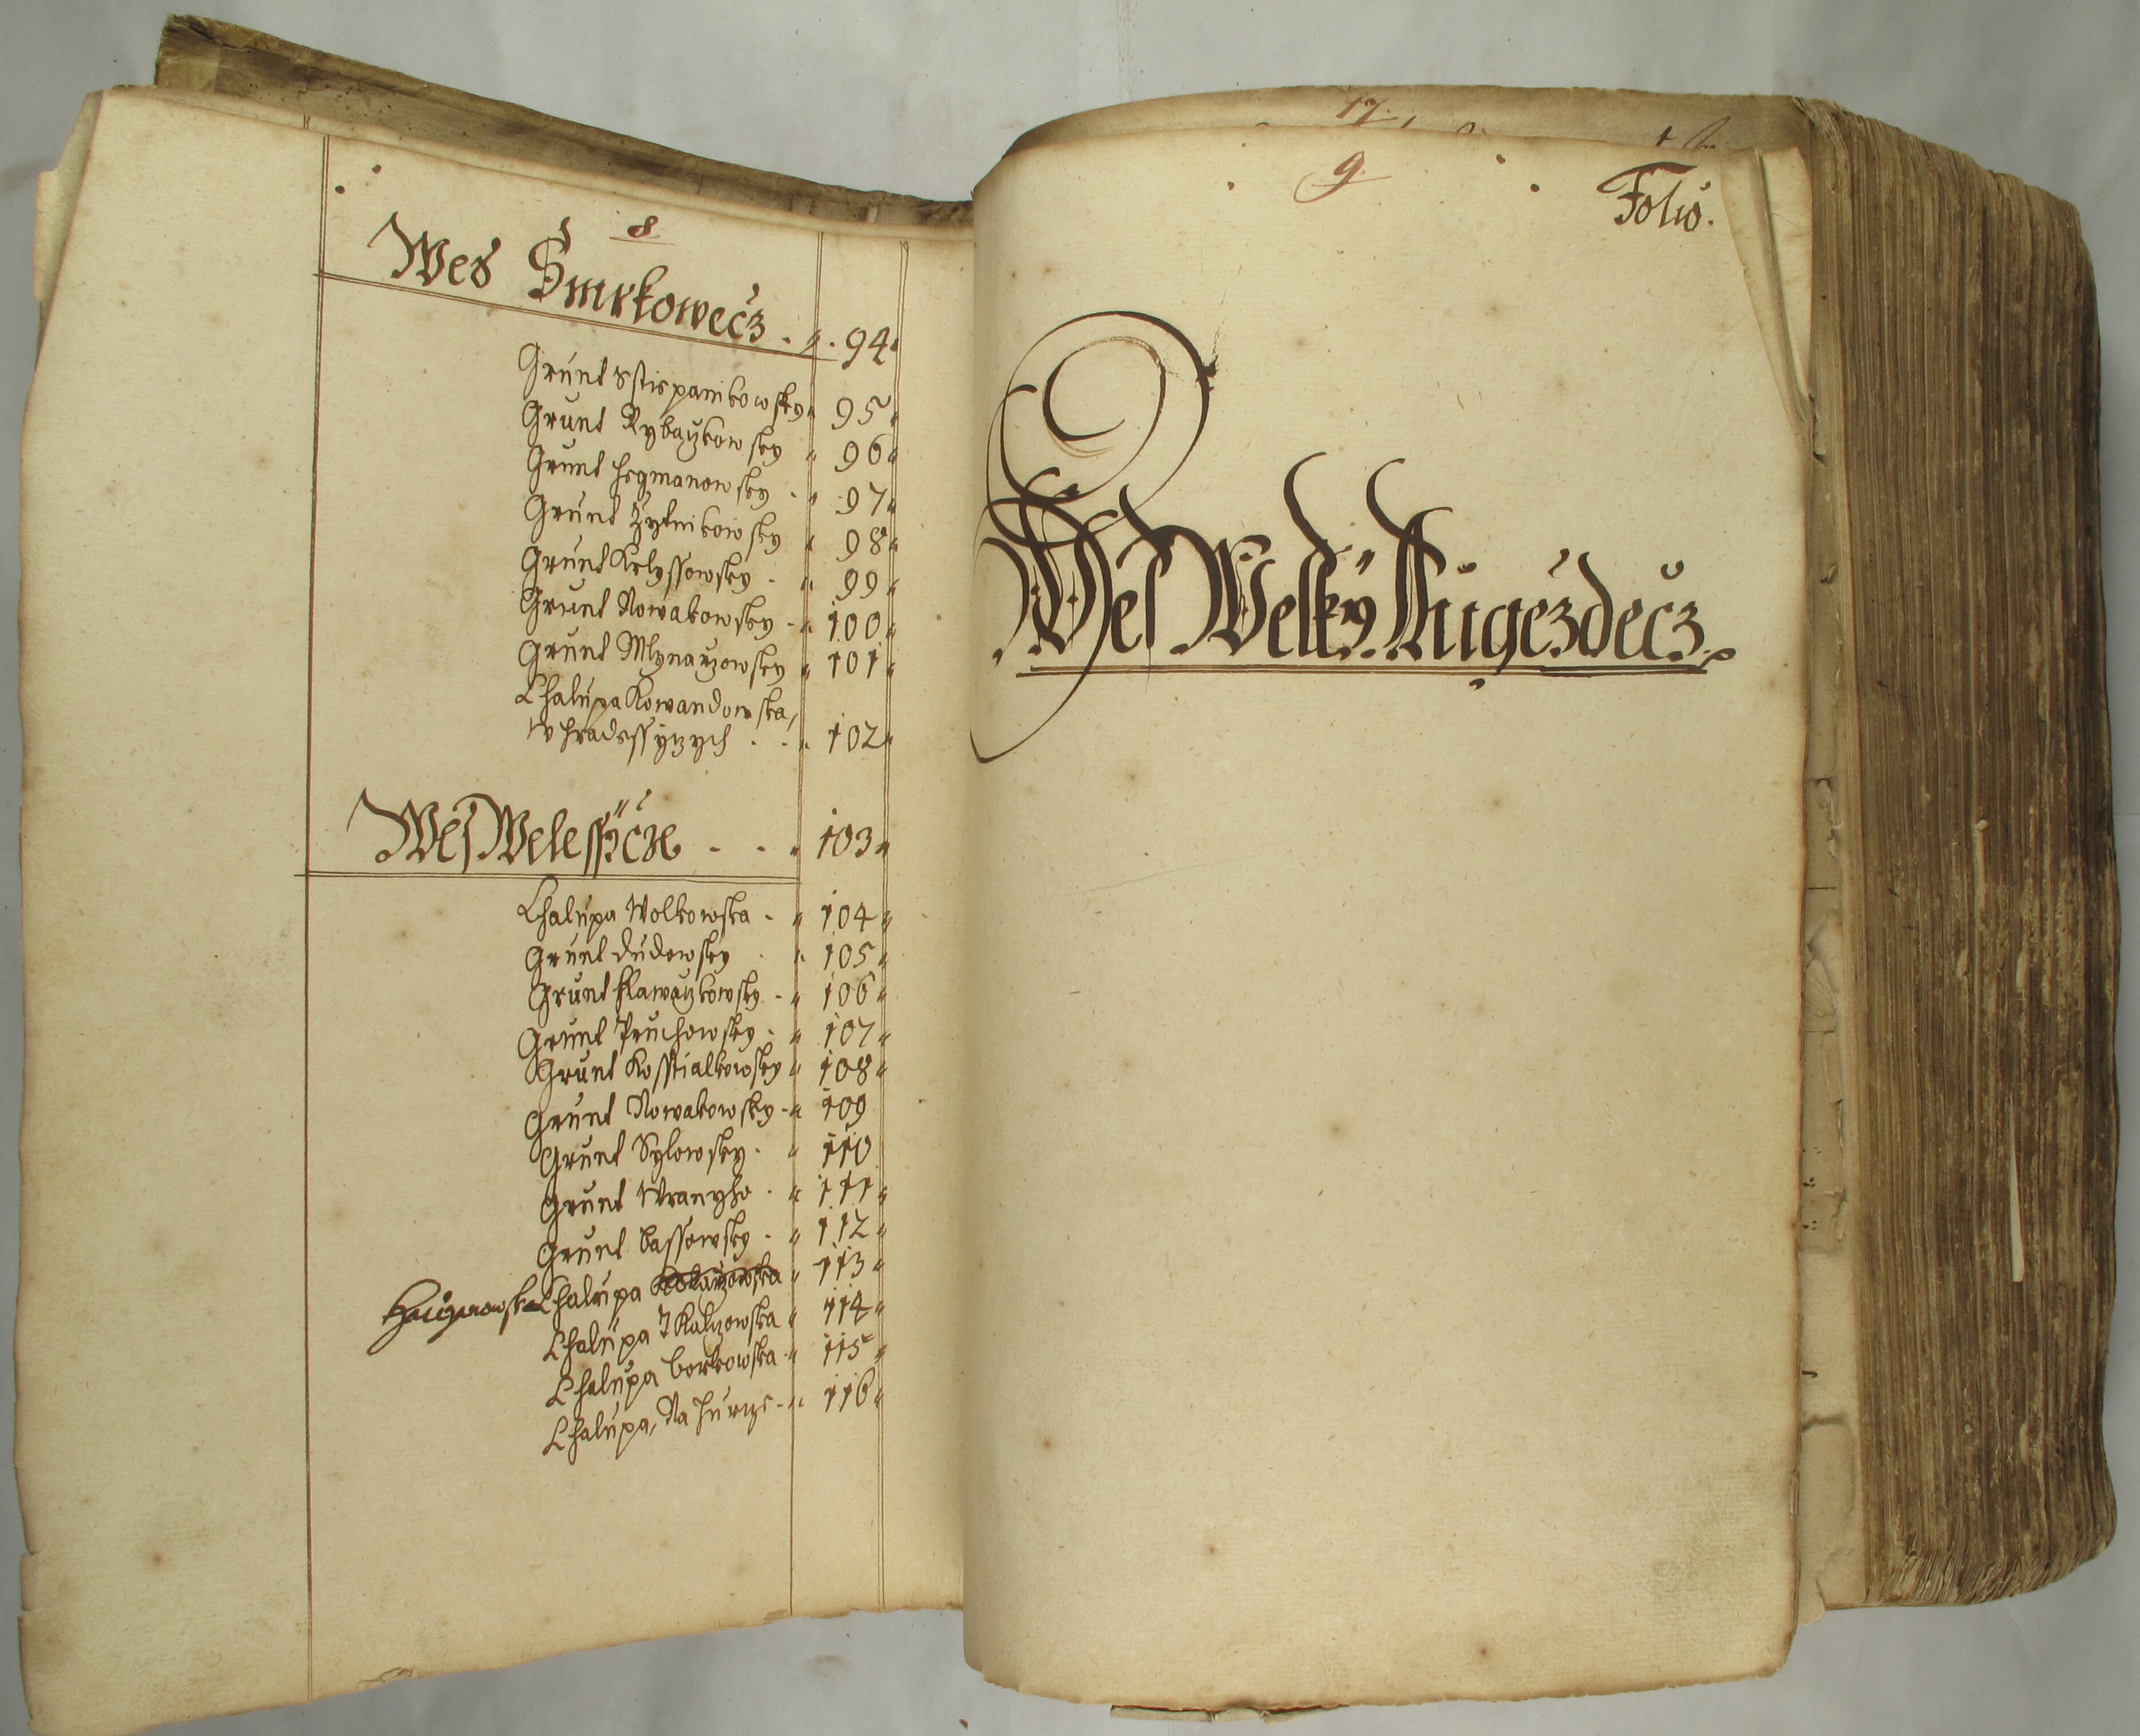 8
Wes Smrkowecz . „ . 94
Grunt Sstiepanikowsky „ 95 „
Grunt Rybarzkowsky „ 96 „
Grunt Hegmanowsky . „ 97 „
Grunt Zytnikowsky „ 98 „
Grunt Kryssowsky . „ 99 „
Grunt Nowakowsky - „ 100 „
Grunt Mlynarzowsky „ 101 „
Chalupa Kowandowska,
w Hradessyczych . . „ 102 „
Wes Welessycze . . „ 103 „
Chalupa Wolkowska . „ 104 „
Grunt Dudowsky . „ 105 „
Grunt Hlawaczkowsky . „ 106 „
Grunt Pruchowsky . „ 107 „
Grunt Kosstialkowsky „ 108 „
Grunt Nowakowsky . „ 109
Grunt Sylowsky . „ 110
Grunt Wranyho . „ 111 „
Grunt Bassowsky . „ 112 „
Chalupa „ 113 „
Chalupa Tkalczowska „ 114 „
Chalupa Borkowska „ 115 „
Chalupa, Na Hurcze . „ 116 „
17.
9.
Folio.
Wes Welky Augezdecz.